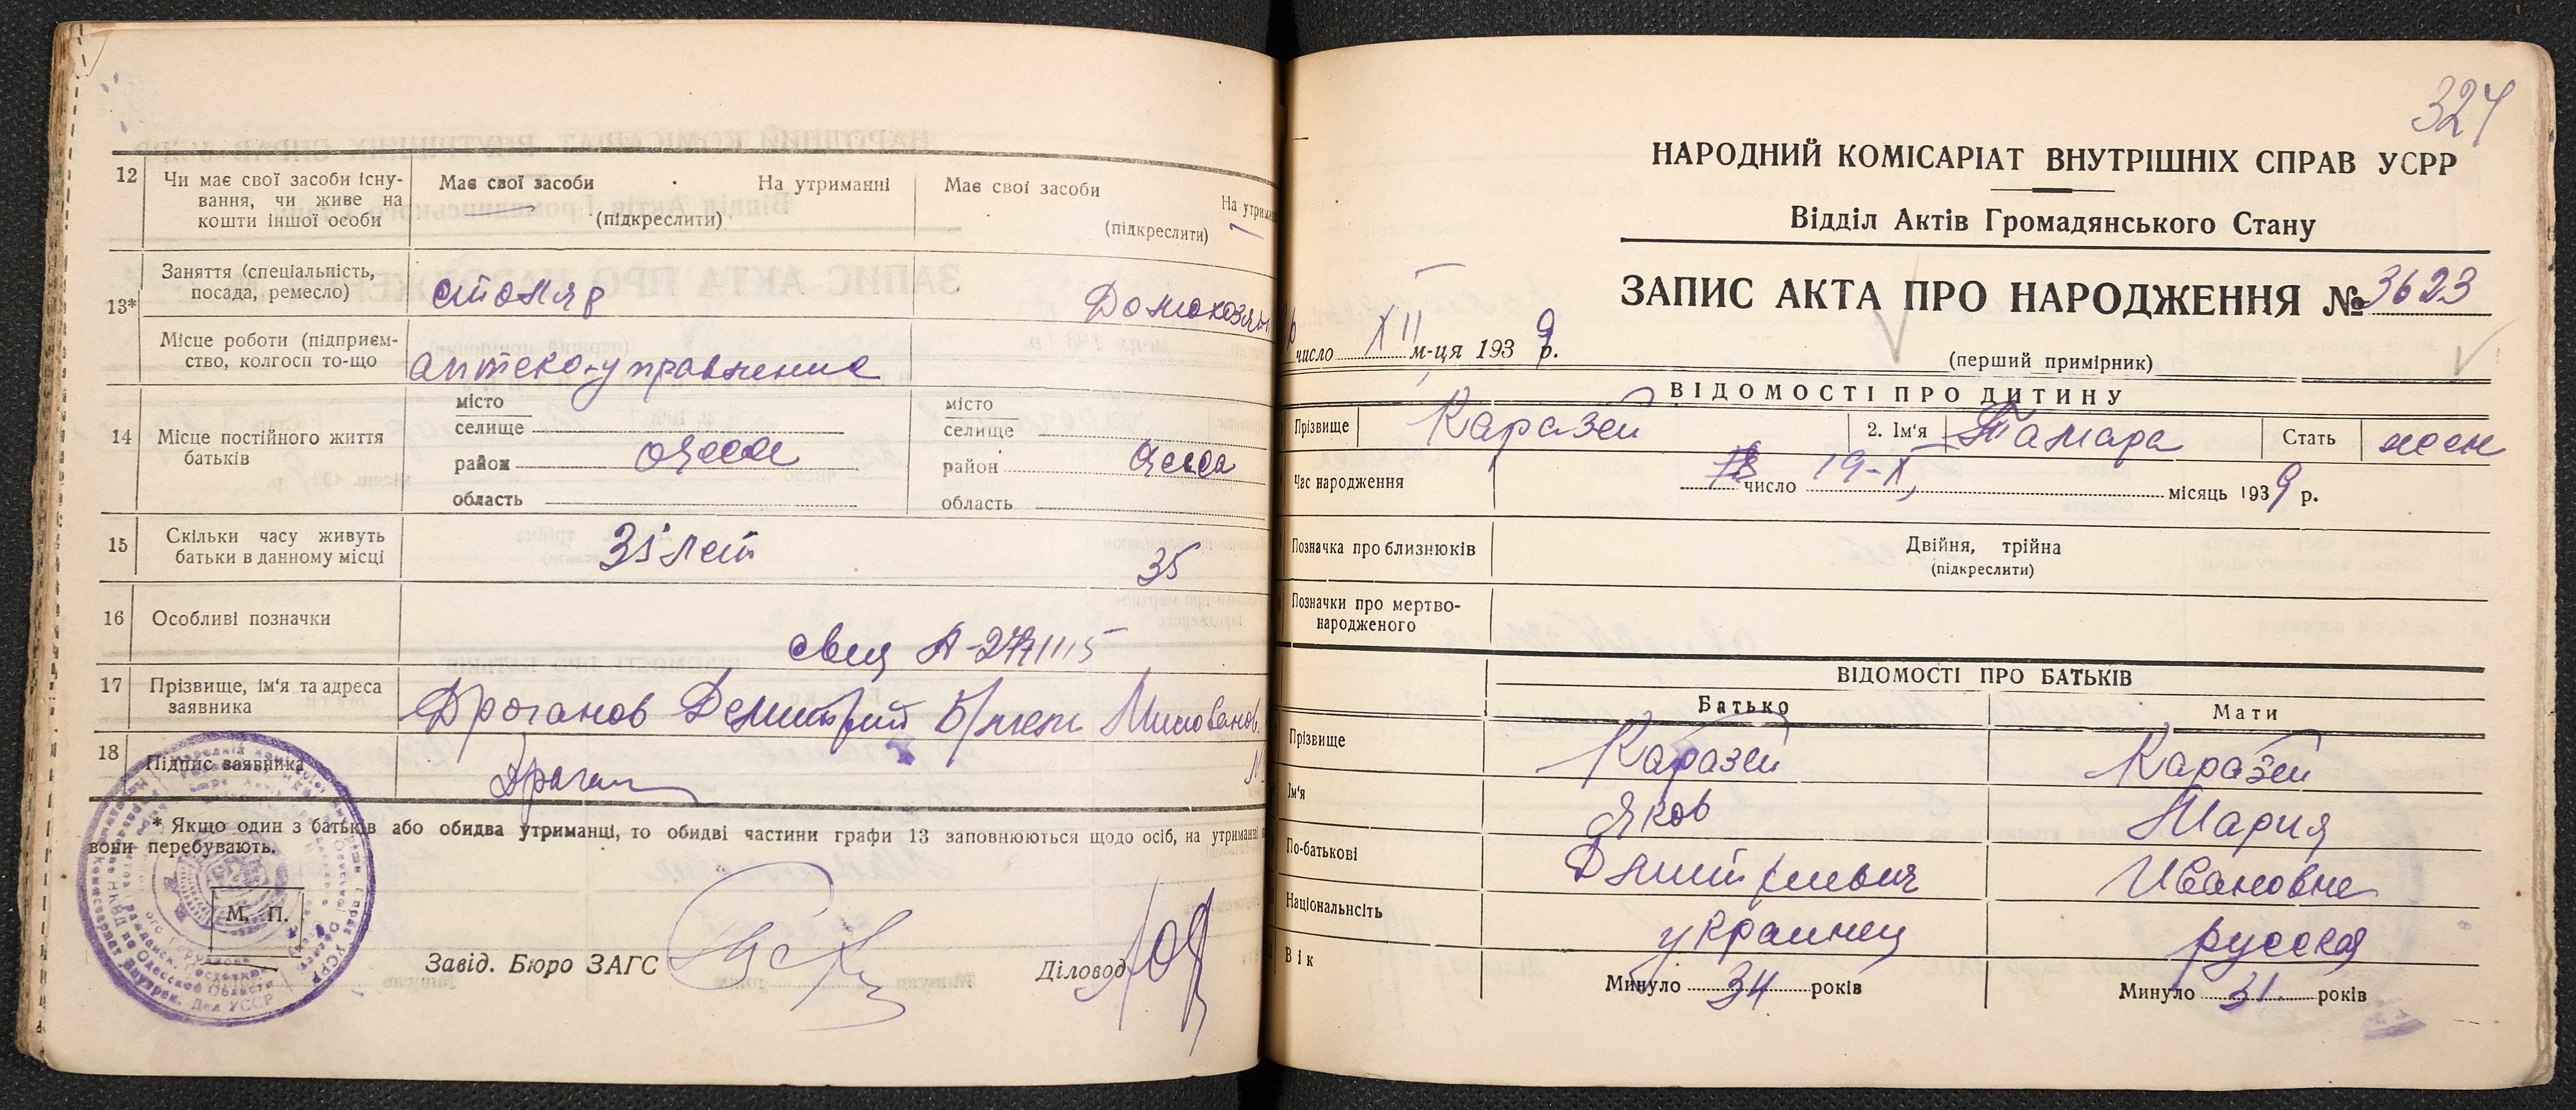 12 Чи має свої засоби існу-
вання, чи живе на
кошти іншої особи
Має свої засоби На утриманні
(підкреслити)
Має свої засоби На утриман
(підкреслити)
13* Заняття (спеціальність,
посада, ремесло)
столяр Домохозяй
Місце роботи (підприєм-
ство, колгосп то-що
аптеко-управление
14 Місце постійного життя
батьків
місто
селище
район Одесса
область
місто
селище
район Одесса
область
15 Скільки часу живуть
батьки в данному місці
31 лет 35
16 Особливі позначки
свид А-2771115
17 Прізвище, ім'я та адреса
заявника
Драганов Демитрий
18 Підпис заявника
Драган
* Якщо один з батьків або обидва утриманці, то обидві частини графи 13 заповнюються щодо осіб, на утриманні
вони перебувають.
М. П.
Завід. Бюро ЗАГС Діловод
324
НАРОДНИЙ КОМІСАРІАТ ВНУТРІШНІХ СПРАВ УСРР
Відділ Актів Громадянського Стану
ЗАПИС АКТА ПРО НАРОДЖЕННЯ № 3623
число XII м-ця 1939 р.
(перший примірник)
ВІДОМОСТІ ПРО ДИТИНУ
Прізвище Каразей 2. Ім'я Тамара Стать жен
Час народження число 19-X, місяць 1939 р.
Позначка про близнюків
Двійня, трійна
(підкреслити)
Позначки про мертво-
народженого
ВІДОМОСТІ ПРО БАТЬКІВ
Батько Мати
Прізвище Каразей Каразей
Ім'я Яков Мария
По-батькові Дмитриевич Ивановне
Національність украинец русская
Вік Минуло 34 років Минуло 31 років